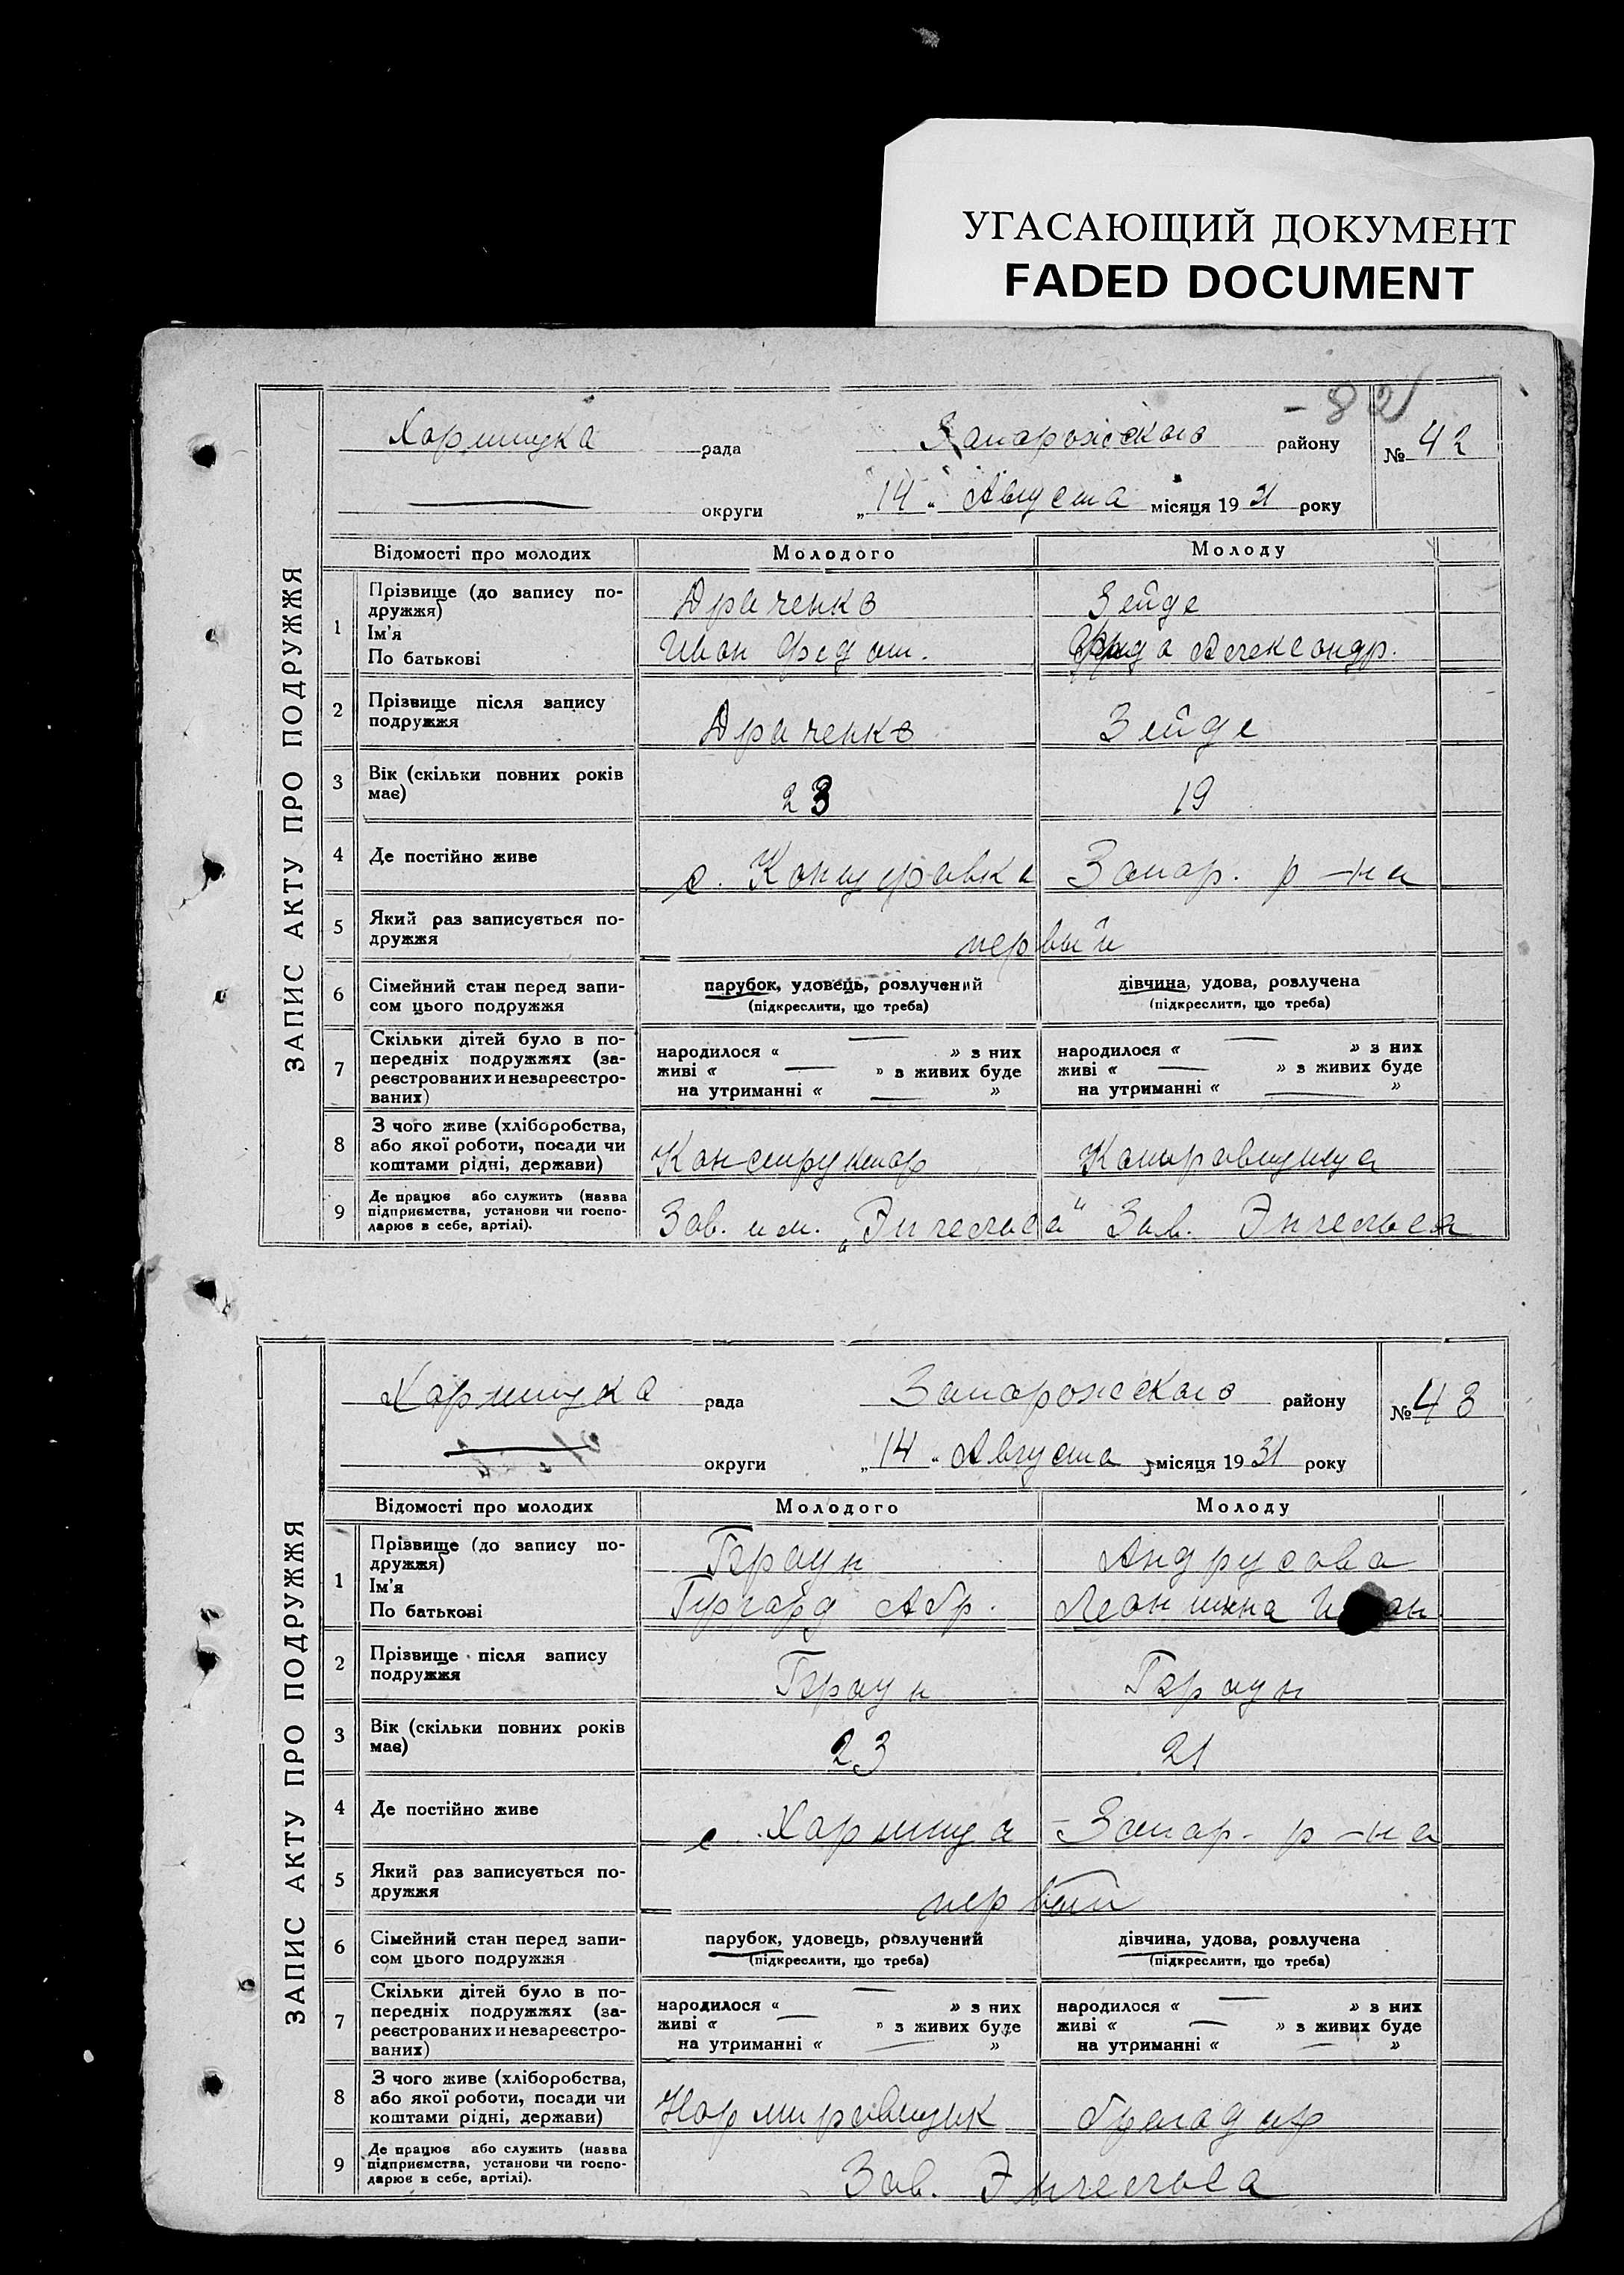 УГАСАЮЩИЙ ДОКУМЕНТ
FADED DOCUMENT
ЗАПИС АКТУ ПРО ПОДРУЖЖЯ
- 82
рада Запорожского району № 42
округи „14“ Августа місяця 1931 року
Відомості про молодих Молодого Молоду
1 Прізвище (до запису по-
дружжя) Драченко Зейде
Ім'я
По батькові Иван Федот. Фрида Александр.
2 Прізвище після запису
подружжя Драченко Зейде
3 Вік (скільки повних років
має) 23 19
4 Де постійно живе с. Канцеровка Запор. р-на
5 Який раз записується по-
дружжя первый
6 Сімейний стан перед запи-
сом цього подружжя парубок, удовець, розлучений дівчина, удова, розлучена
(підкреслити, що треба) (підкреслити, що треба)
7 Скільки дітей було в по-
передніх подружжях (за-
реєстрованих и незареєстро-
ваних)
народилося « — » з них народилося « — » з них
живі « — » з живих буде живі « — » з живих буде
на утриманні « — » на утриманні « — »
8 З чого живе (хліборобства,
або якої роботи, посади чи
коштами рідні, держави) Конструктор Копировщица
9 Де працює або служить (назва
підприємства, установи чи госпо-
дарює в себе, артілі). Зав. им. „Энгельса“ Зав. Энгельса
ЗАПИС АКТУ ПРО ПОДРУЖЖЯ
рада Запорожского району № 43
округи „14“ Августа місяця 1931 року
Відомості про молодих Молодого Молоду
1 Прізвище (до запису по-
дружжя) Браун Андрусова
Ім'я
По батькові Гергард Абр. Леонтина
2 Прізвище після запису
подружжя Браун Браун
3 Вік (скільки повних років
має) 23 21
4 Де постійно живе с. Запор. р-на
5 Який раз записується по-
дружжя первый
6 Сімейний стан перед запи-
сом цього подружжя парубок, удовець, розлучений дівчина, удова, розлучена
(підкреслити, що треба) (підкреслити, що треба)
7 Скільки дітей було в по-
передніх подружжях (за-
реєстрованих и незареєстро-
ваних)
народилося « — » з них народилося « — » з них
живі « — » з живих буде живі « — » з живих буде
на утриманні « — » на утриманні « — »
8 З чого живе (хліборобства,
або якої роботи, посади чи
коштами рідні, держави) Нормировщик бригадир
9 Де працює або служить (назва
підприємства, установи чи госпо-
дарює в себе, артілі). Зав. Энгельса